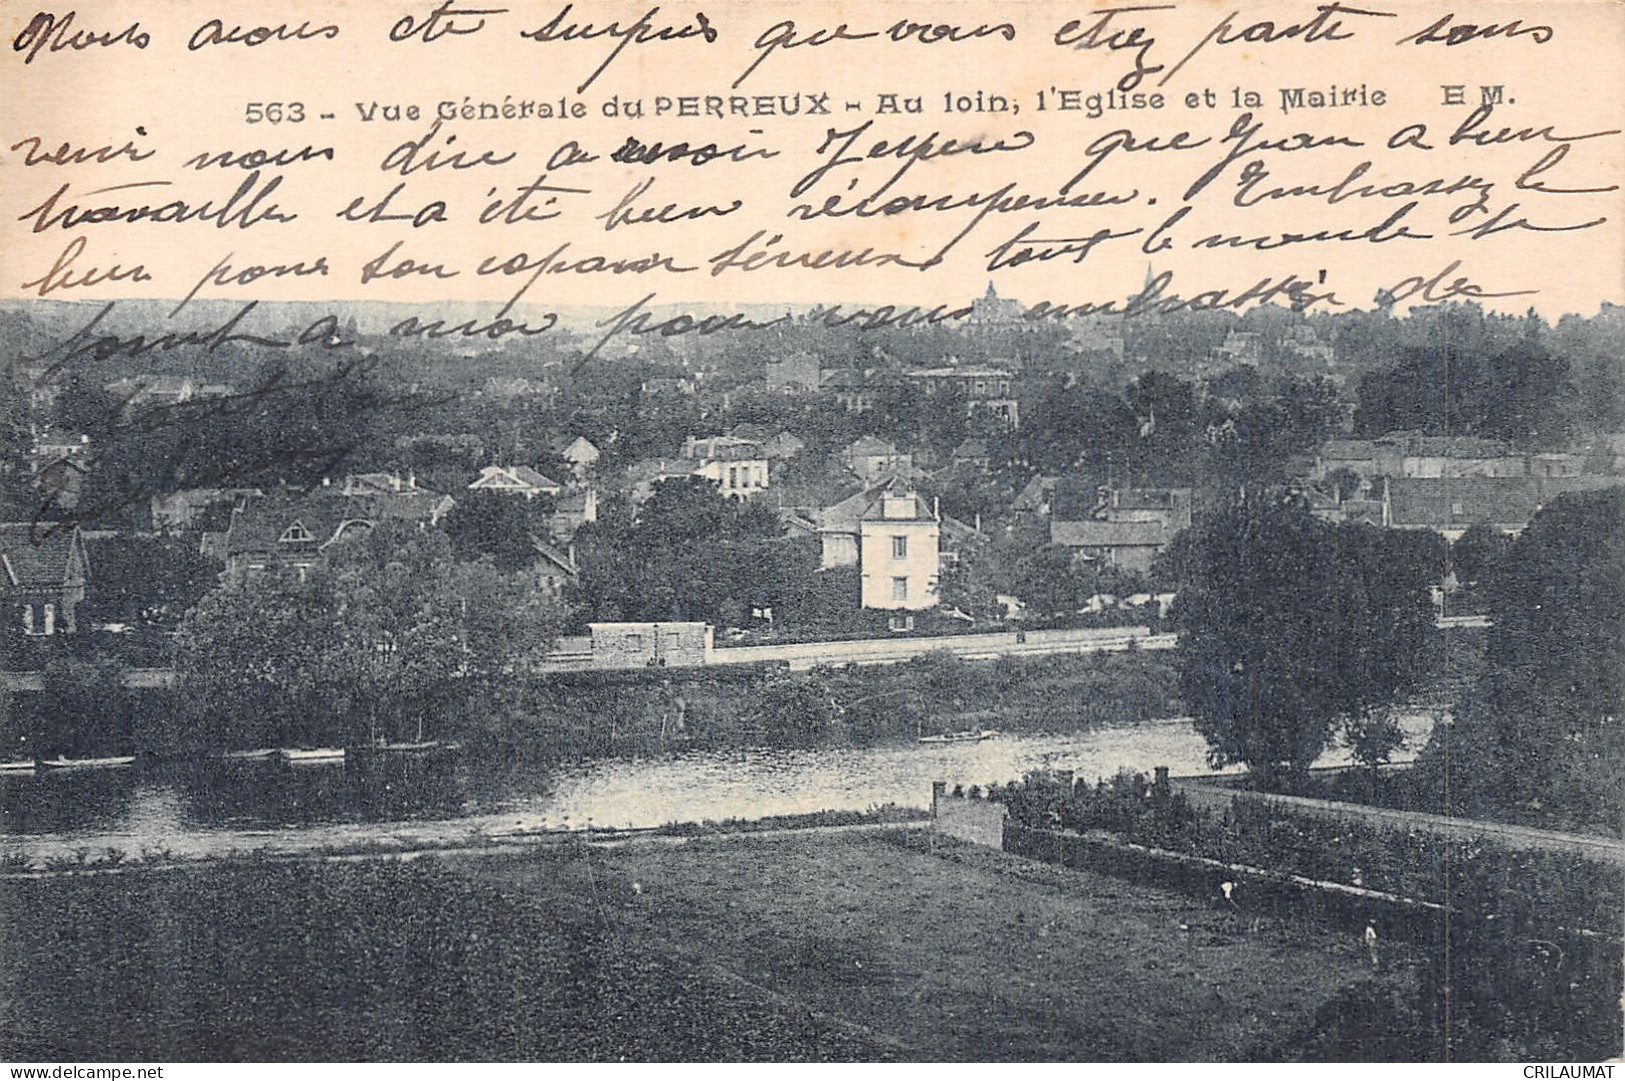 Nous avons été surpris que vous etiez parti sans
563 - Vue Générale du PERREUX - Au loin, l'Eglise et la Mairie E. M.
venir nous dire a revoir J'espere que Jean a bien
travailler et a été bien récompenser. Embrassez le
bien pour son copain tout le monde se
joint a moi pour vous embrasser de
tout
CRILAUMAT